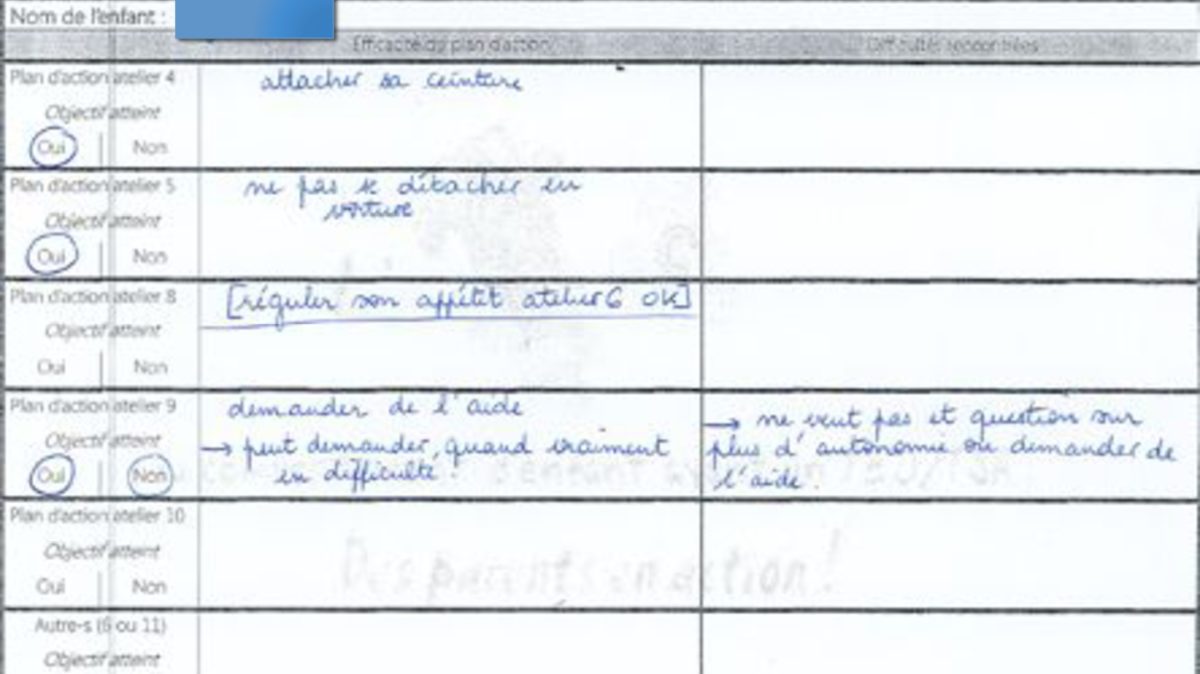 Nom de l'enfant :
Efficacité du plan d'action
Difficultés rencontrées
Plan d'action atelier 4
attacher sa ceinture
Objectif atteint
Oui Non
Plan d'action atelier 5
ne pas se détacher en
voiture
Objectif atteint
Oui Non
Plan d'action atelier 8
[réguler son appétit atelier 6 OK]
Objectif atteint
Oui Non
Plan d'action atelier 9
demander de l'aide
→ peut demander, quand vraiment
en difficulté.
Objectif atteint
Oui Non
→ ne veut pas et question sur
plus d'autonomie ou demander de
l'aide.
Plan d'action atelier 10
Objectif atteint
Oui Non
Des parents en action !
Autre-s (6 ou 11)
Objectif atteint